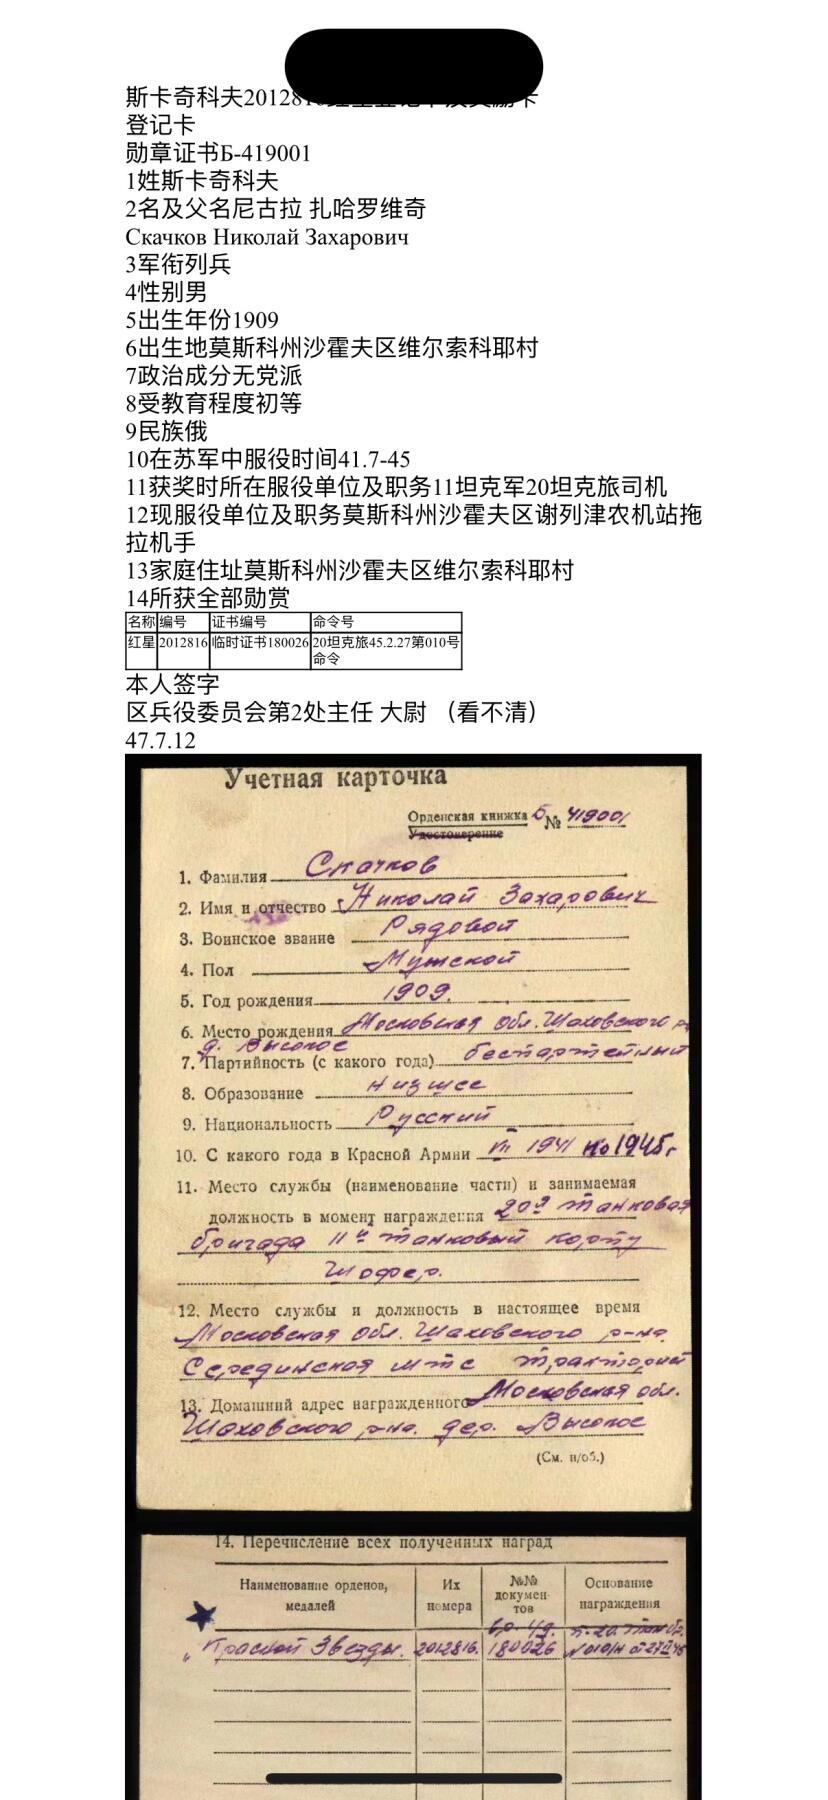 斯卡奇科夫2012816
登记卡
勋章证书Б-419001
1姓斯卡奇科夫
2名及父名尼古拉 扎哈罗维奇
Скачков Николай Захарович
3军衔列兵
4性别男
5出生年份1909
6出生地莫斯科州沙霍夫区维尔索科耶村
7政治成分无党派
8受教育程度初等
9民族俄
10在苏军中服役时间41.7-45
11获奖时所在服役单位及职务11坦克军20坦克旅司机
12现服役单位及职务莫斯科州沙霍夫区谢列津农机站拖
拉机手
13家庭住址莫斯科州沙霍夫区维尔索科耶村
14所获全部勋赏
名称 编号 证书编号 命令号
红星 2012816 临时证书180026 20坦克旅45.2.27第010号
命令
本人签字
区兵役委员会第2处主任 大尉 （看不清）
47.7.12
Учетная карточка
Орденская книжка Б № 419001
Удостоверение
1. Фамилия Скачков
2. Имя и отчество Николай Захарович
3. Воинское звание Рядовой
4. Пол Мужской
5. Год рождения 1909.
6. Место рождения Московская обл. Шаховского р
д. Высокое
7. Партийность (с какого года) беспартейный
8. Образование низшее
9. Национальность Русский
10. С какого года в Красной Армии 1941 по 1945г
11. Место службы (наименование части) и занимаемая
должность в момент награждения 20я танковая
бригада 11й танковый корпу
Шофер.
12. Место службы и должность в настоящее время
Московская обл. Шаховского р-на.
Серединская мтс тракторист
13. Домашний адрес награжденного Московская обл.
Шаховского р-на. дер. Высокое
(См. н/об.)
14. Перечисление всех полученных наград
Наименование орденов, медалей Их номера №№ документов Основание награждения
вр. уд. п. 20. тан бр.
"Красной Звезды. 2012816. 180026 N 010/н от 27 II 45